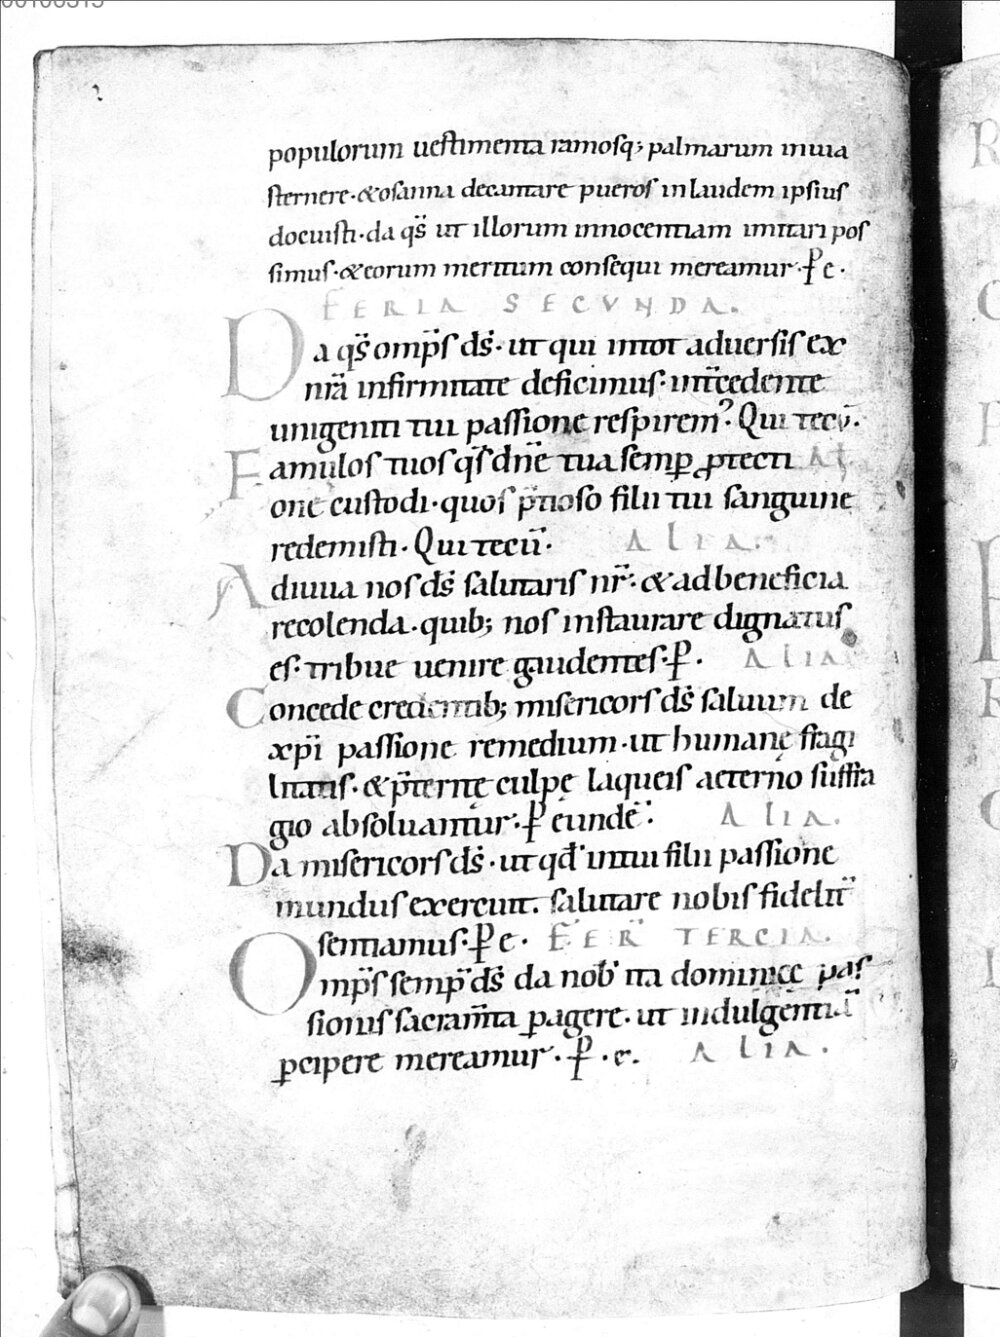 populorum uestimenta ramosq; palmarum inuia
sternere·&osanna decantare pueros in laudem ipsius
docuisti·da qs̄ ut illorum innocentiam imitari pos
simus·&eorum meritum consequi mereamur·P̄ e·
FERIA SECUNDA.
Da qs̄ omp̄s ds̄·ut qui intot aduersis ex
nr̄a infirmitate deficimus·int̄cedente
unigeniti tui passione respirem᷒·Qui tecū·
Famulos tuos qs̄ dn̄e tua semp̱ ꝓtecti Al̄
one custodi·quos p̄tioso filii tui sanguine
redemisti·Qui tecū· ALIA.
Adiuua nos ds̄ salutaris nr̄·&adbeneficia
recolenda·quib; nos instaurare dignatus
es·tribue uenire gaudentes·P̄· ALIA
Concede credentib; misericors ds̄ saluum de
xp̄i passione remedium·ut humanę fragi
litatis·&p̄teritę culpę laqueis aeterno suffra
gio absoluantur·P̄ eundē· ALIA.
Da misericors ds̄·ut qđ intui filii passione
mundus exercuit. salutare nobis fidelit̄
sentiamus·P̄ e· FER̄ TERCIA.
Omp̄s semp̄ ds̄ da nob̄ ita dominicę pas
sionis sacram̄ta ꝑagere·ut indulgentiā
ꝑcipere mereamur·P̄·e. ALIA.